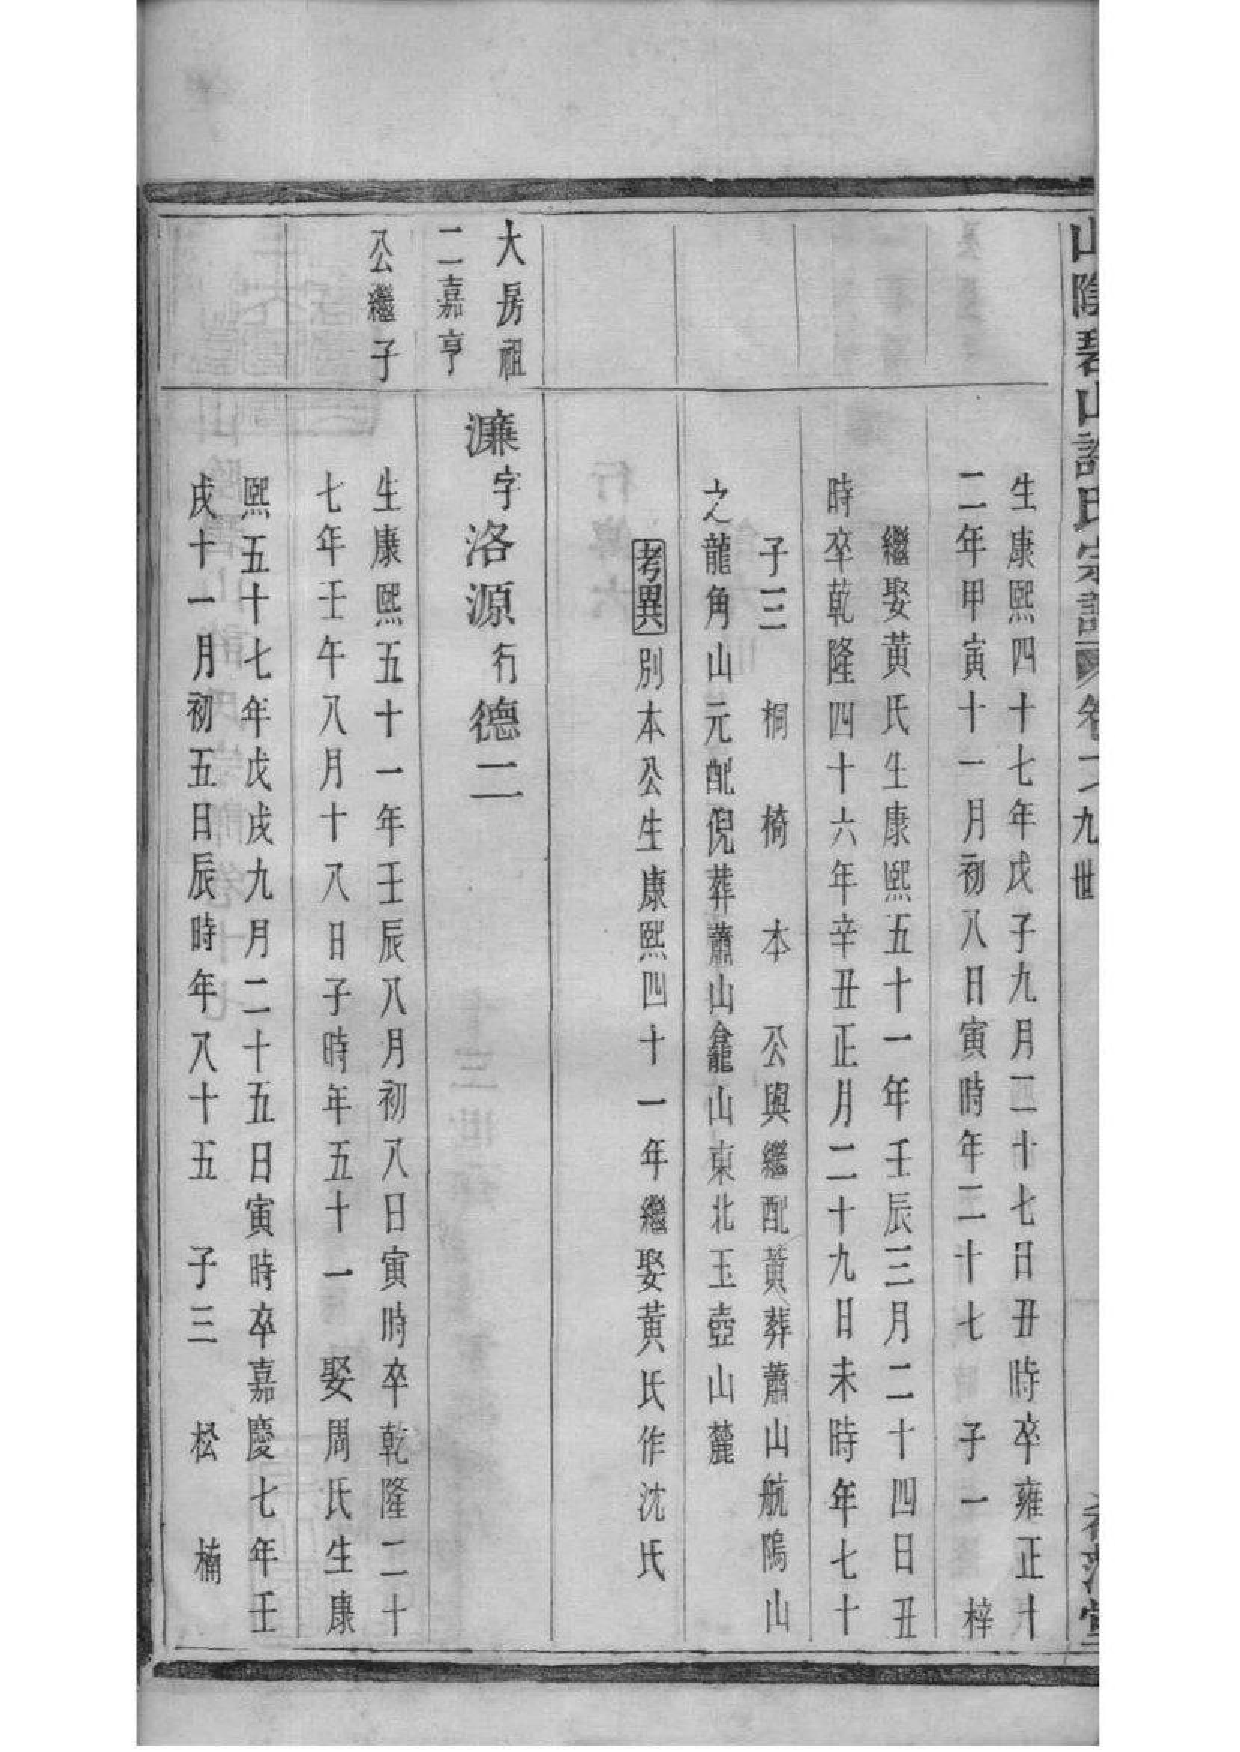 生康熙四十七年戊子九月二十七日丑時卒雍正十
二年甲寅十一月初八日寅時年二十七　子一　梓
繼娶黃氏生康熙五十一年壬辰三月二十四日丑
時卒乾隆四十六年辛丑正月二十九日未時年七十
子三　桐　椅　本　公與繼配黃葬蕭山航隝山
之龍角山元配倪葬蕭山龕山東北玉壺山麓
考異別本公生康熙四十一年繼娶黃氏作沈氏
大房祖
二嘉亨
公繼子
濂字洛源行德二
生康熙五十一年壬辰八月初八日寅時卒乾隆二十
七年壬午八月十八日子時年五十一　娶周氏生康
熙五十七年戊戌九月二十五日寅時卒嘉慶七年壬
戌十一月初五日辰時年八十五　子三　松　楠